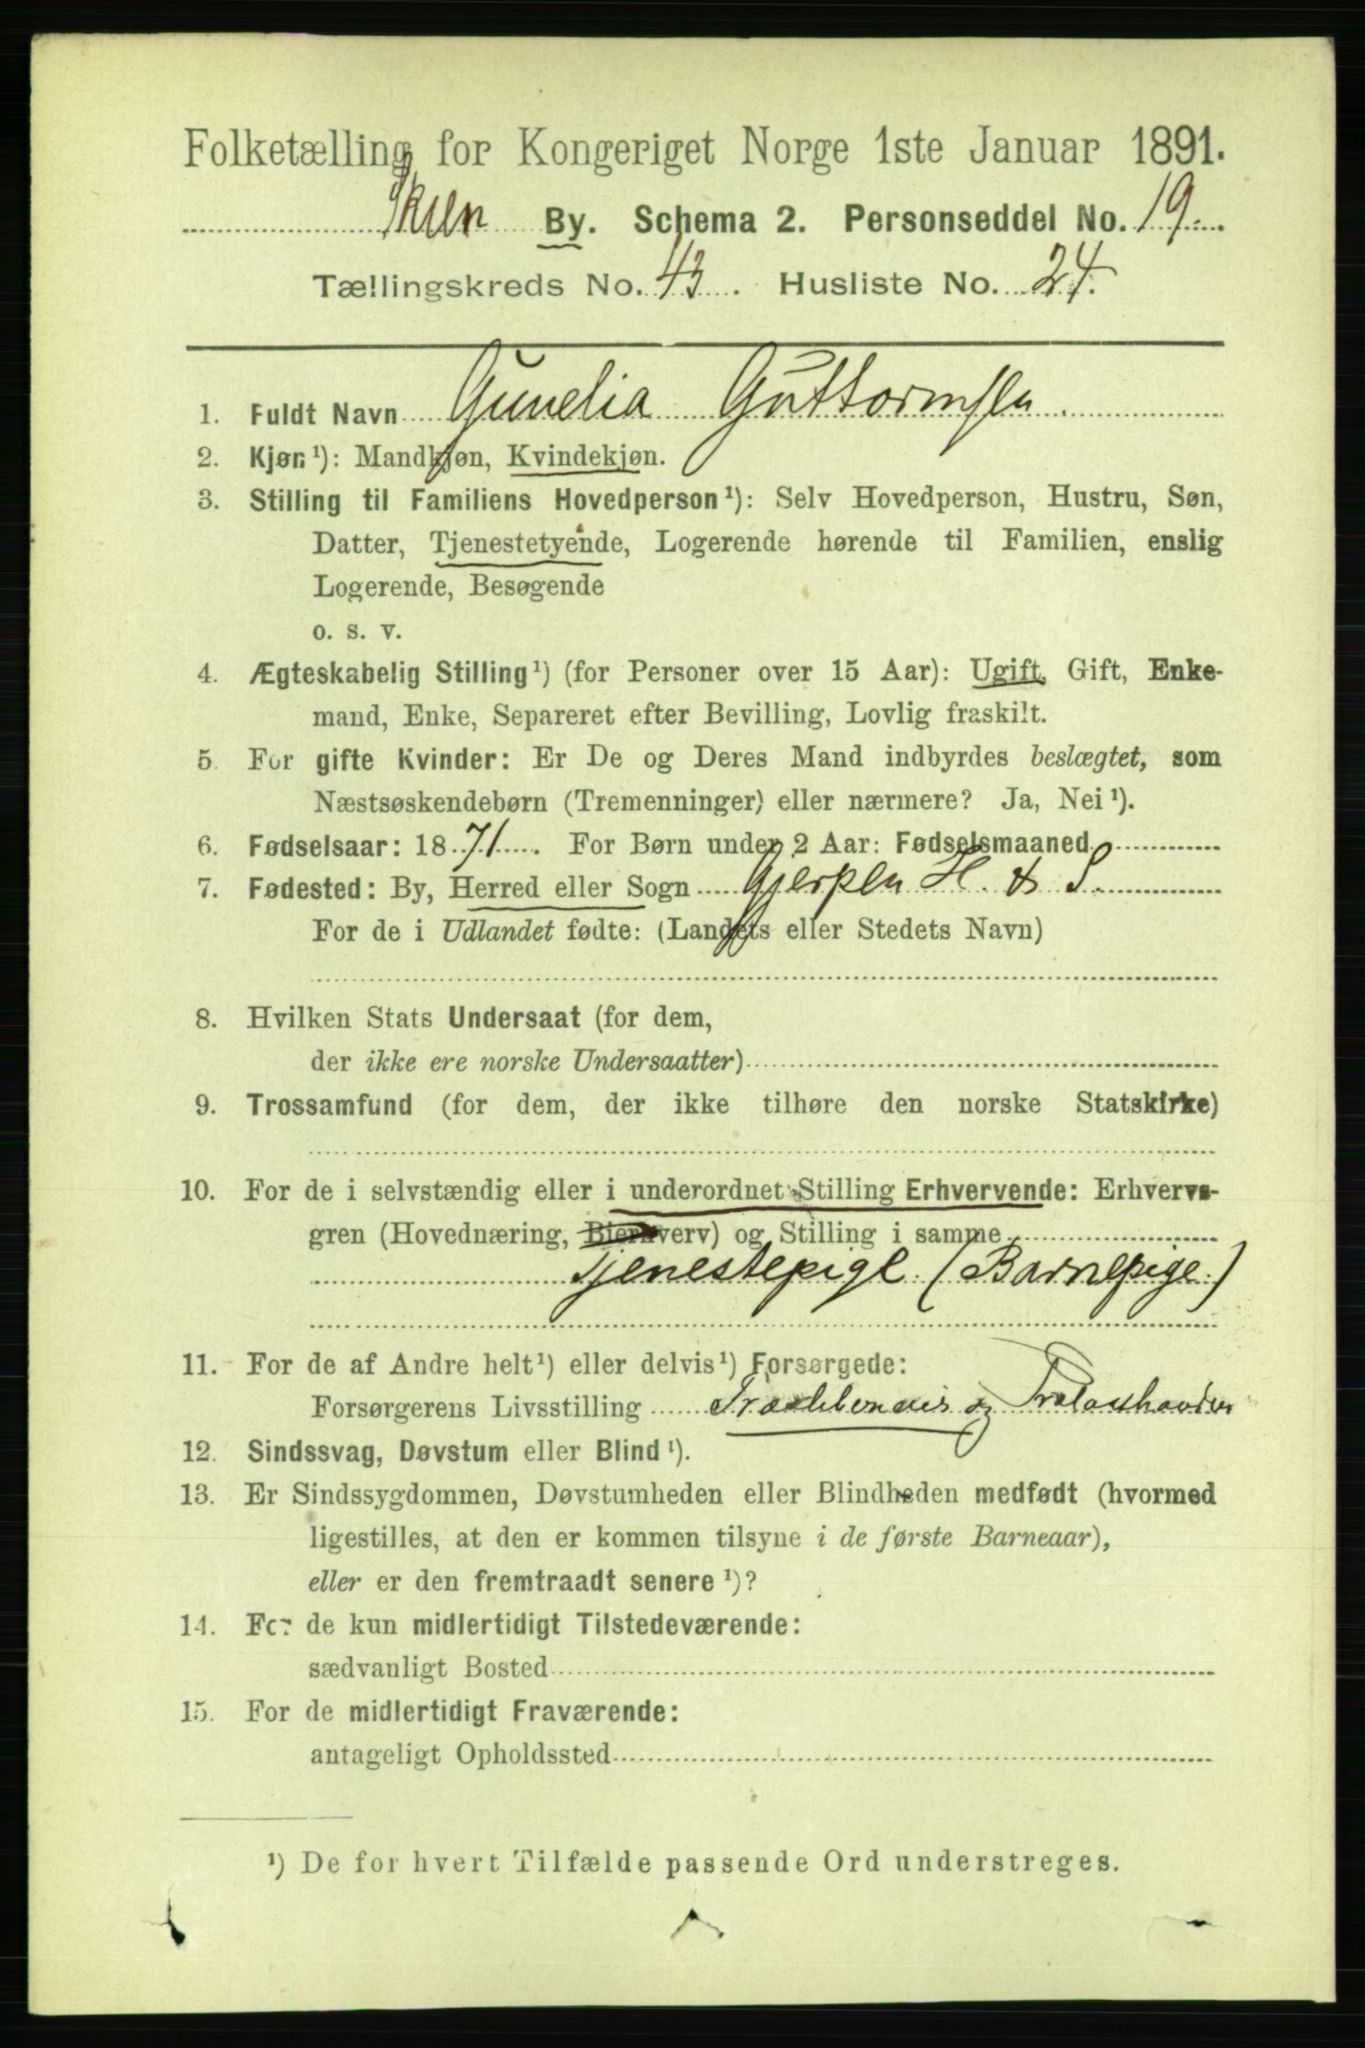 Folketælling for Kongeriget Norge 1ste Januar 1891.
Skien By. Schema 2. Personseddel No. 19.
Tællingskreds No. 43. Husliste No. 24.
1. Fuldt Navn Gunelia Guttormsen
2. Kjøn ¹): Mandkjøn, Kvindekjøn.
3. Stilling til Familiens Hovedperson ¹): Selv Hovedperson, Hustru, Søn,
Datter, Tjenestetyende, Logerende hørende til Familien, enslig
Logerende, Besøgende
o. s. v.
4. Ægteskabelig Stilling ¹) (for Personer over 15 Aar): Ugift, Gift, Enke-
mand, Enke, Separeret efter Bevilling, Lovlig fraskilt.
5. For gifte Kvinder: Er De og Deres Mand indbyrdes beslægtet, som
Næstsøskendebørn (Tremenninger) eller nærmere? Ja, Nei ¹).
6. Fødselsaar: 1871. For Børn under 2 Aar: Fødselsmaaned
7. Fødested: By, Herred eller Sogn Gjerpen H. & S.
For de i Udlandet fødte: (Landets eller Stedets Navn)
8. Hvilken Stats Undersaat (for dem,
der ikke ere norske Undersaatter)
9. Trossamfund (for dem, der ikke tilhøre den norske Statskirke)
10. For de i selvstændig eller i underordnet Stilling Erhvervende: Erhvervs-
gren (Hovednæring, Bierhverv) og Stilling i samme
Tjenestepige (Barnepige.)
11. For de af Andre helt ¹) eller delvis ¹) Forsørgede:
Forsørgerens Livsstilling
12. Sindssvag, Døvstum eller Blind ¹).
13. Er Sindssygdommen, Døvstumheden eller Blindheden medfødt (hvormed
ligestilles, at den er kommen tilsyne i de første Barneaar),
eller er den fremtraadt senere ¹)?
14. For de kun midlertidigt Tilstedeværende:
sædvanligt Bosted
15. For de midlertidigt Fraværende:
antageligt Opholdssted
¹) De for hvert Tilfælde passende Ord understreges.